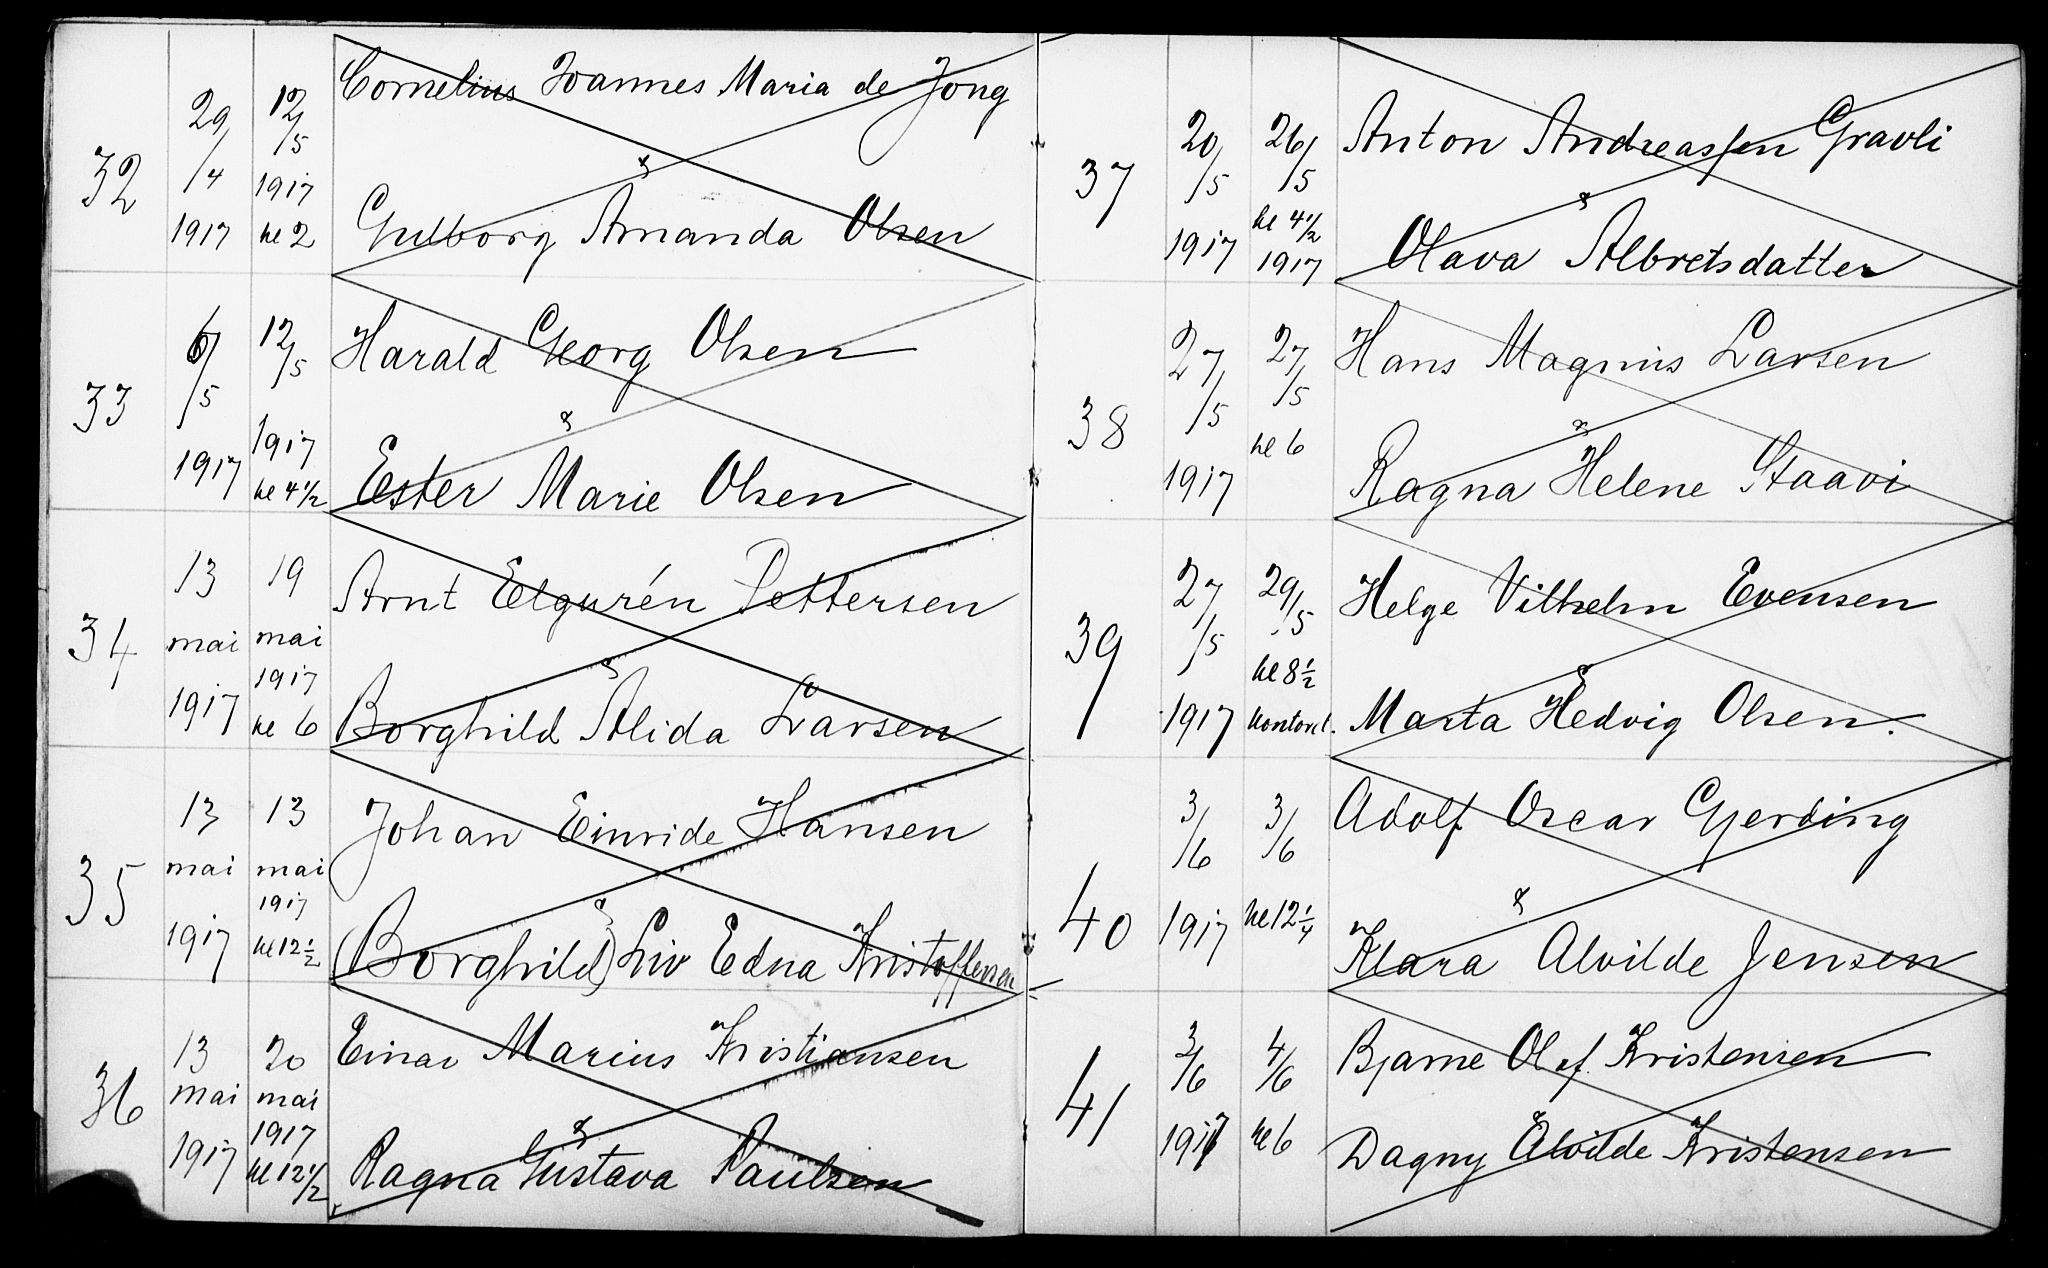 32
29/4 1917
12/5 1917 kl 2
Cornelius Joannes Maria de Jong
&
Gulborg Amanda Olsen
33
6/5 1917
12/5 1917 kl 4 1/2
Harald Georg Olsen
&
Ester Marie Olsen
34
13 mai 1917
19 mai 1917 kl 6
Arnt Elgurén Pettersen
&
Borghild Alida Larsen
35
13 mai 1917
13 mai 1917 kl 12 1/2
Johan Einride Hansen
&
(Borghild) Liv Edna Kristoffersen
36
13 mai 1917
20 mai 1917 kl 12 1/2
Einar Marius Kristiansen
&
Ragna Gustava Paulsen
37
20/5 1917
26/5 kl 4 1/2 1917
Anton Andreassen Gravli
&
Olava Albretsdatter
38
27/5 1917
27/5 kl 6
Hans Magnus Larsen
&
Ragna Helene Staavi
39
27/5 1917
29/5 kl 8 1/2 kontoret.
Helge Vilhelm Evensen
&
Marta Hedvig Olsen.
40
3/6 1917
3/6 kl 12 1/4
Adolf Oscar Gjerding
&
Klara Alvilde Jensen
41
3/6 1917
4/6 kl 6
Bjarne Olaf Kristensen
Dagny Alvilde Kristensen